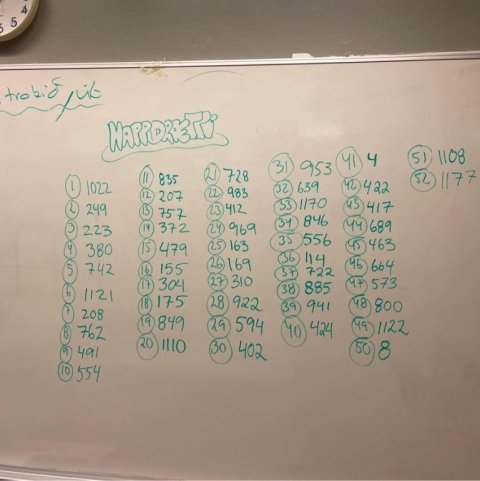 HAPPDRÆTTI
1 1022
2 249
3 223
4 380
5 742
6 1121
7 208
8 762
9 491
10 554
11 835
12 207
13 757
14 372
15 479
16 155
17 304
18 175
19 849
20 1110
21 728
22 983
23 412
24 969
25 163
26 169
27 310
28 922
29 594
30 402
31 953
32 639
33 1170
34 846
35 556
36 114
37 722
38 885
39 941
40 424
41 4
42 422
43 417
44 689
45 463
46 664
47 573
48 800
49 1122
50 8
51 1108
52 1177